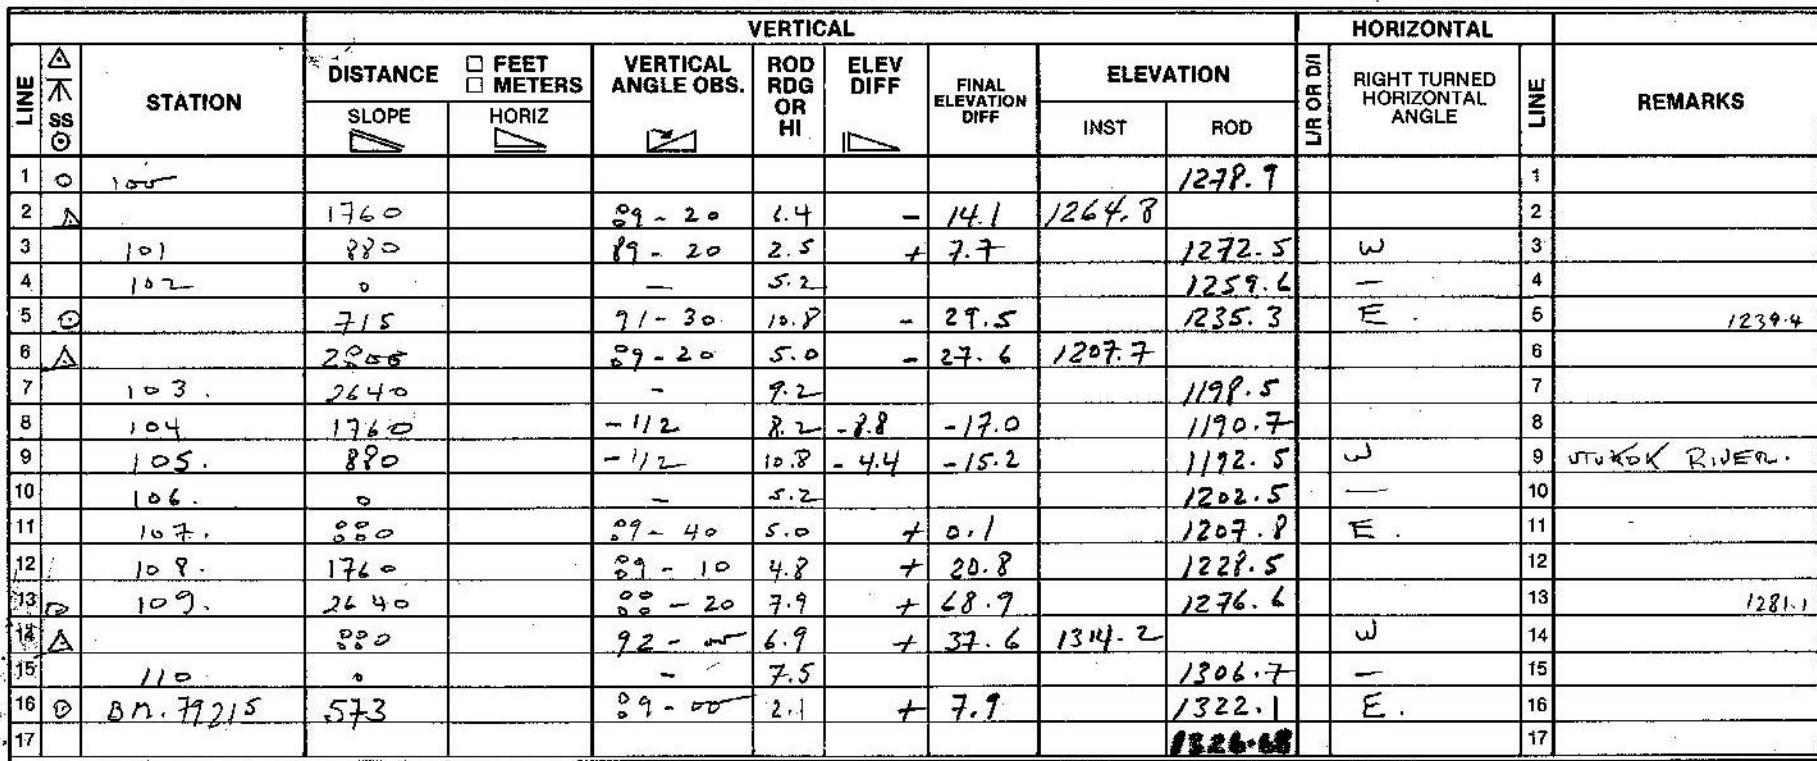 VERTICAL HORIZONTAL
LINE SS STATION DISTANCE □ FEET □ METERS SLOPE HORIZ VERTICAL ANGLE OBS. ROD RDG OR HI ELEV DIFF FINAL ELEVATION DIFF ELEVATION INST ROD L/R OR D/I RIGHT TURNED HORIZONTAL ANGLE LINE REMARKS
1 100 1278.9 1
2 1760 89-20 6.4 - 14.1 1264.8 2
3 101 880 89-20 2.5 + 7.7 1272.5 W 3
4 102 0 - 5.2 1259.6 - 4
5 715 91-30 10.8 - 29.5 1235.3 E. 5 1239.4
6 89-20 5.0 - 27.6 1207.7 6
7 103. 2640 - 9.2 1198.5 7
8 104 1760 -1/2 8.2 -8.8 -17.0 1190.7 8
9 105. 880 -1/2 10.8 -4.4 -15.2 1192.5 W 9 UTUKOK RIVER.
10 106. 0 - 5.2 1202.5 - 10
11 107. 880 89-40 5.0 + 0.1 1207.8 E. 11
12 108. 1760 89-10 4.8 + 20.8 1228.5 12
13 109. 2640 88-20 7.9 + 68.9 1276.6 13 1281.1
14 880 92-00 6.9 + 37.6 1314.2 W 14
15 110 0 - 7.5 1306.7 - 15
16 BM. 79215 573 89-00 2.1 + 7.9 1322.1 E. 16
17 1326.68 17